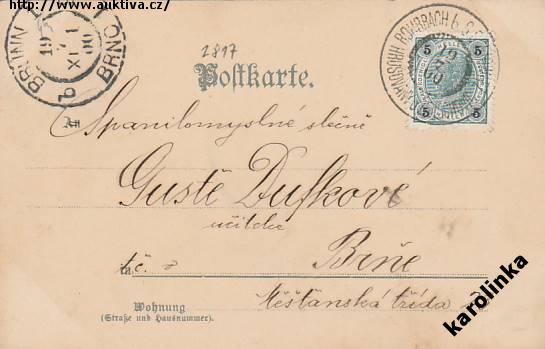 http://www.auktiva.cz/
BRÜNN BRNO
19 7
XI 1
00
b
2817
ROHRBACH b. G.
5 5
5 5
Postkarte.
An Spanilomyslné slečně
Gustě Dufkové
učitelce
in t.č. v Brně
Wohnung
(Straße und Hausnummer).
Měšťanská třída
karolinka